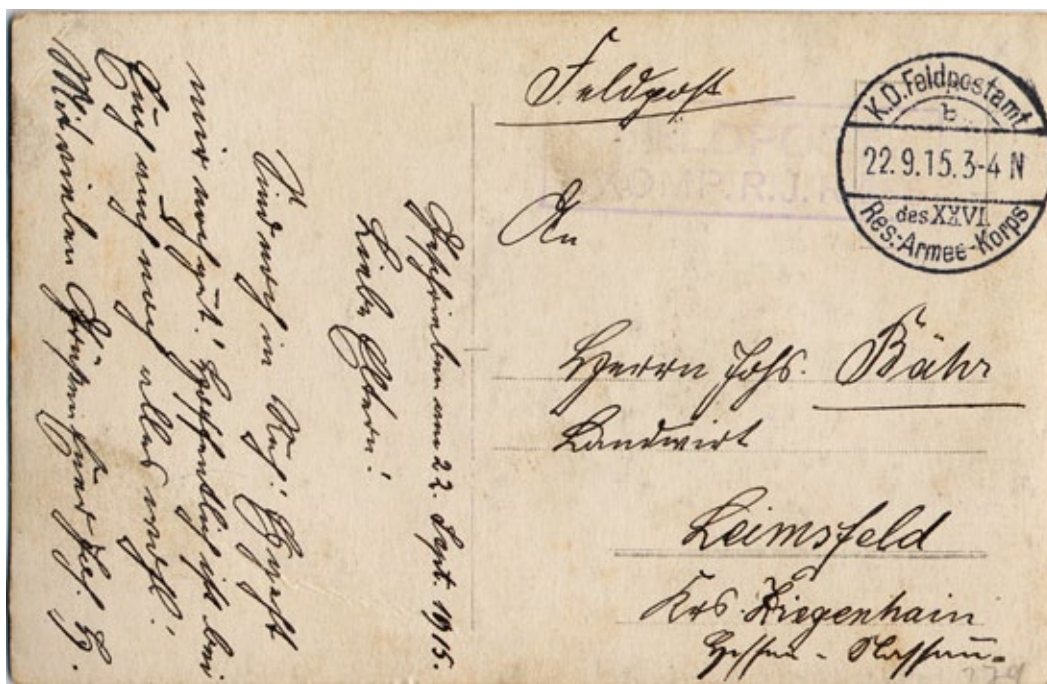 Feldpost
K.D.Feldpostamt
b
22.9.15.3-4 N
des XXVI
Res.-Armee-Korps
KOMP.R.J.R.
An
Herrn Johs. Bähr
Landwirt
Leimsfeld
Krs. Ziegenhain
Hessen-Nassau.
Geschrieben am 22. Sept. 1915.
Liebe Eltern!
Sind noch in Ruh! geht
mir noch gut! Hoffentlich ist bei
Euch auch noch alles wohl!
Mit vielen Grüßen Euer